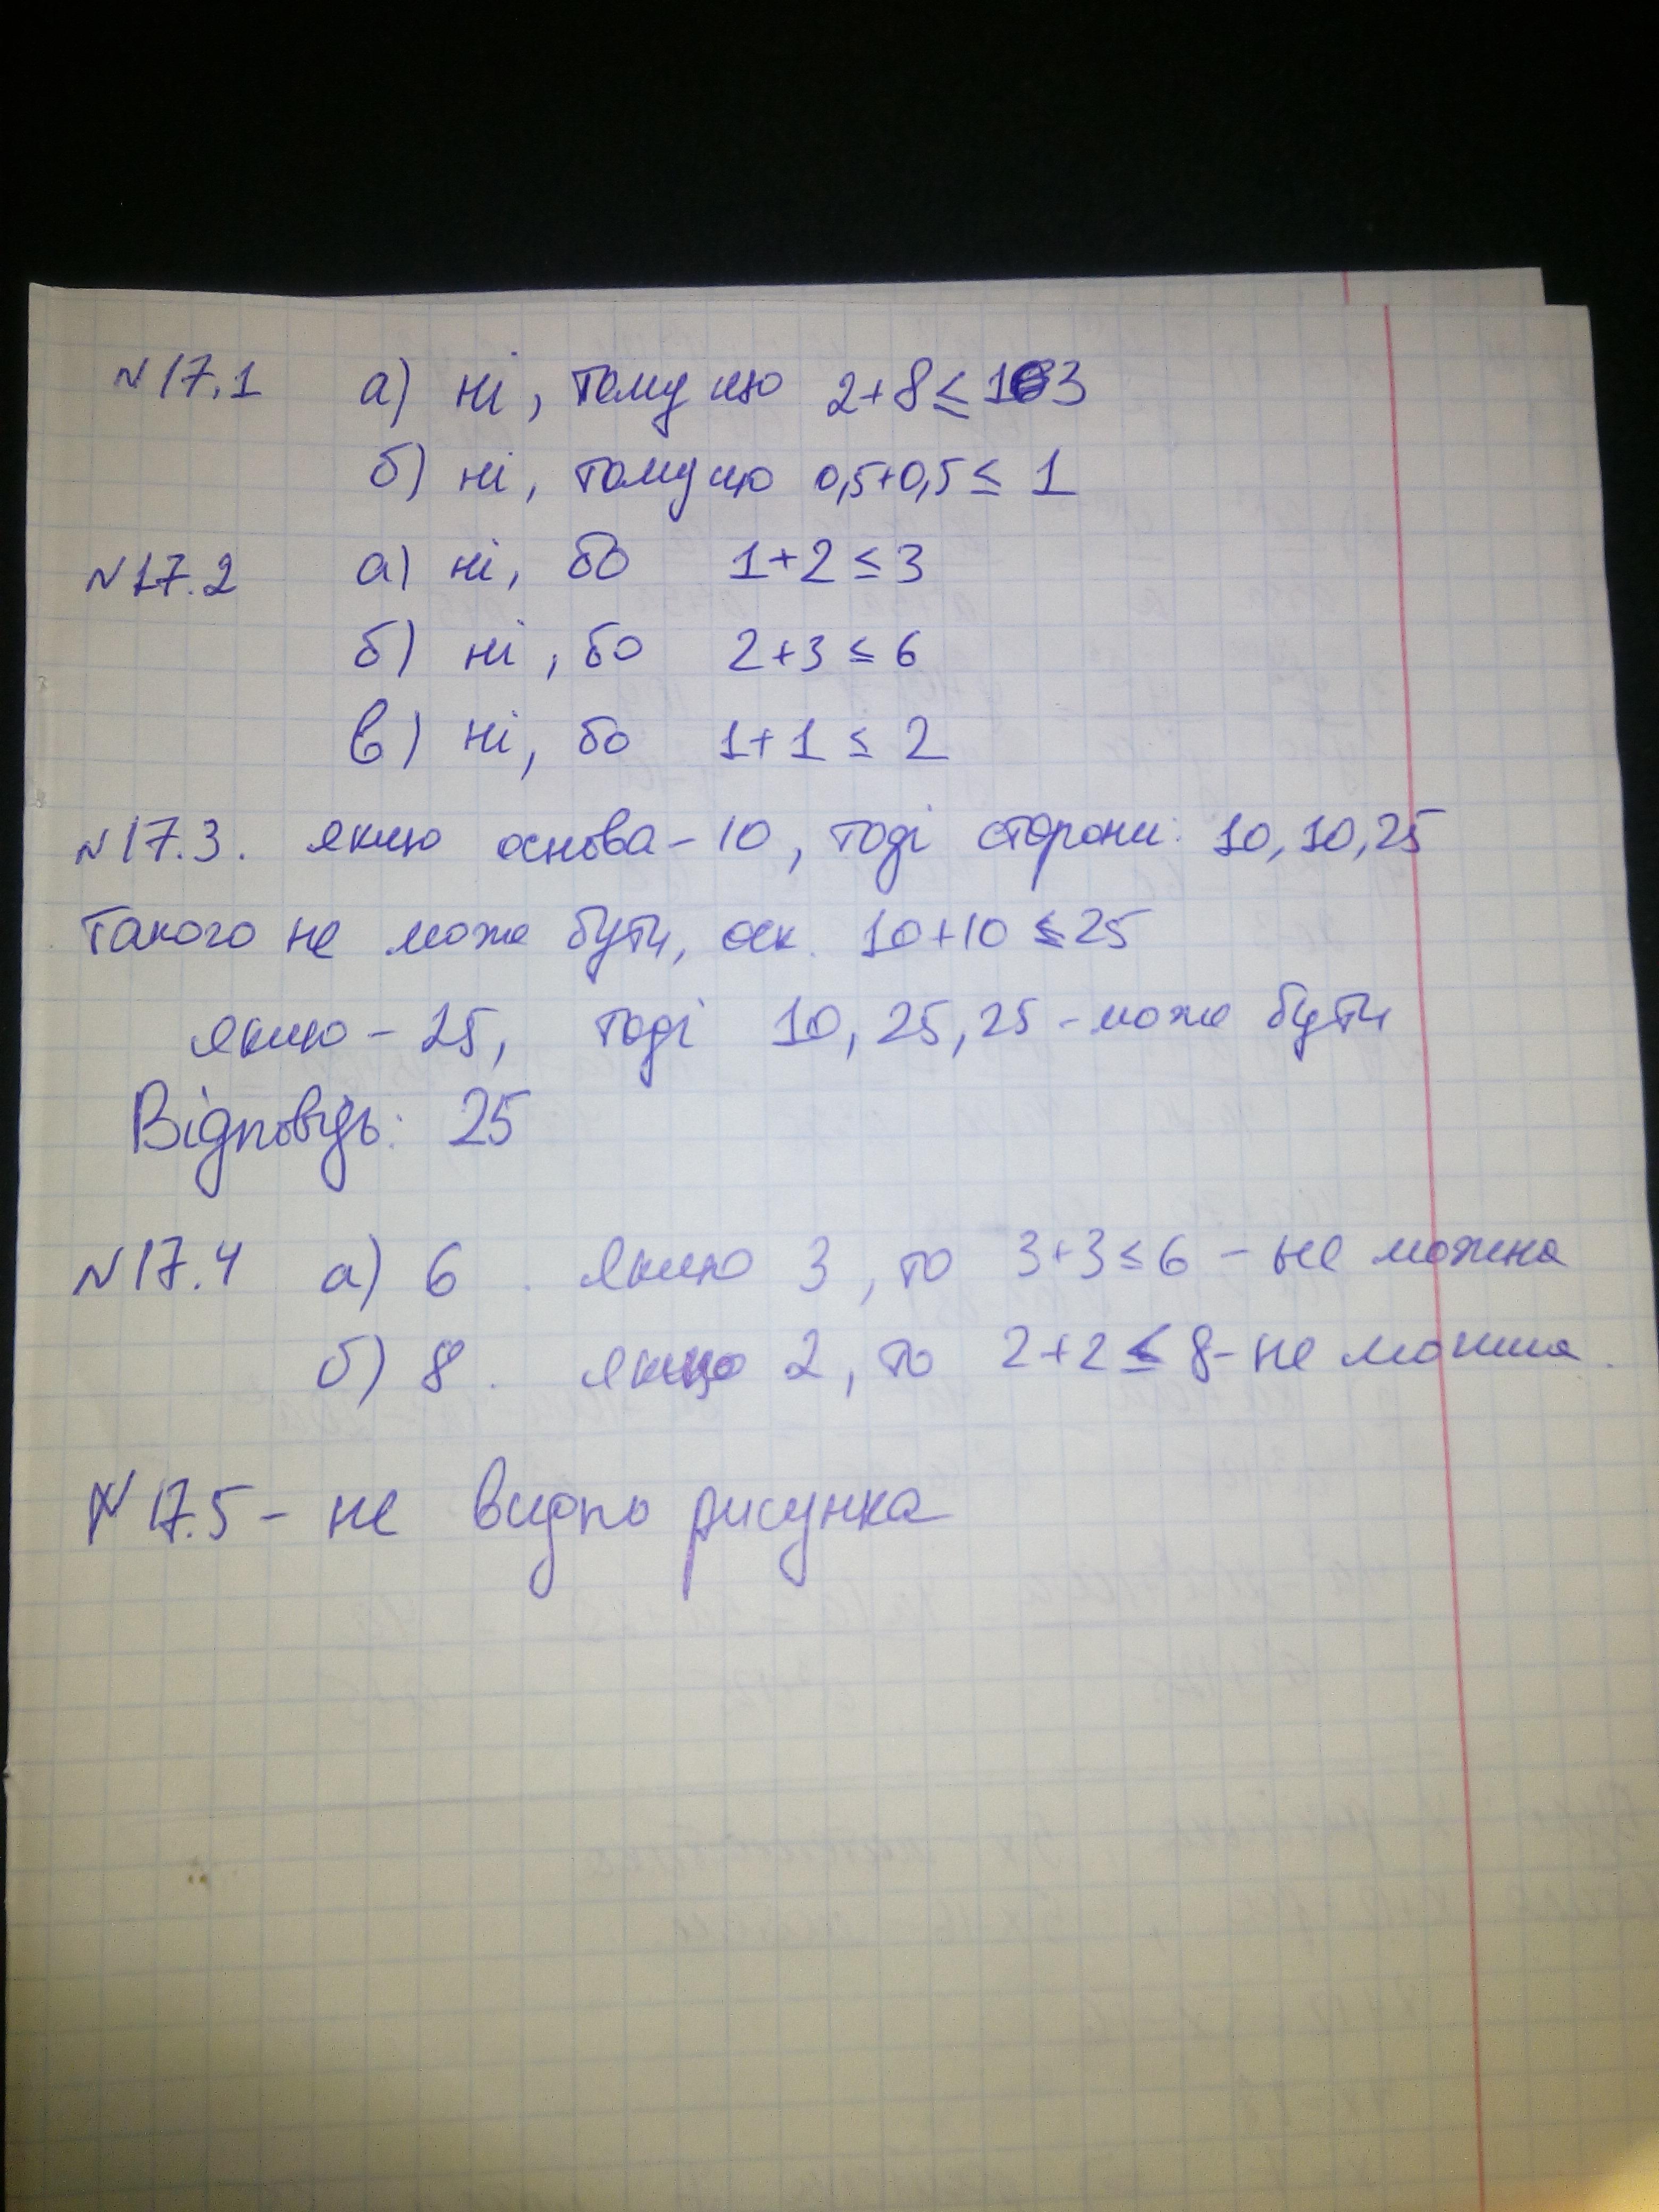 №17.1 а) ні, тому що 2+8≤103
б) ні, тому що 0,5+0,5≤ 1
№17.2 а) ні, бо 1+2≤3
б) ні, бо 2+3≤6
в) ні, бо 1+1≤2
№17.3. якщо основа-10, тоді сторони: 10,10,25
такого не може бути, оск. 10+10≤25
якщо-25, тоді 10,25,25-може бути
Відповідь: 25
№17.4 а) 6. якщо 3, то 3+3≤6-не можна
б) 8. якщо 2, то 2+2≤8-не можна.
№17.5-не видно рисунка